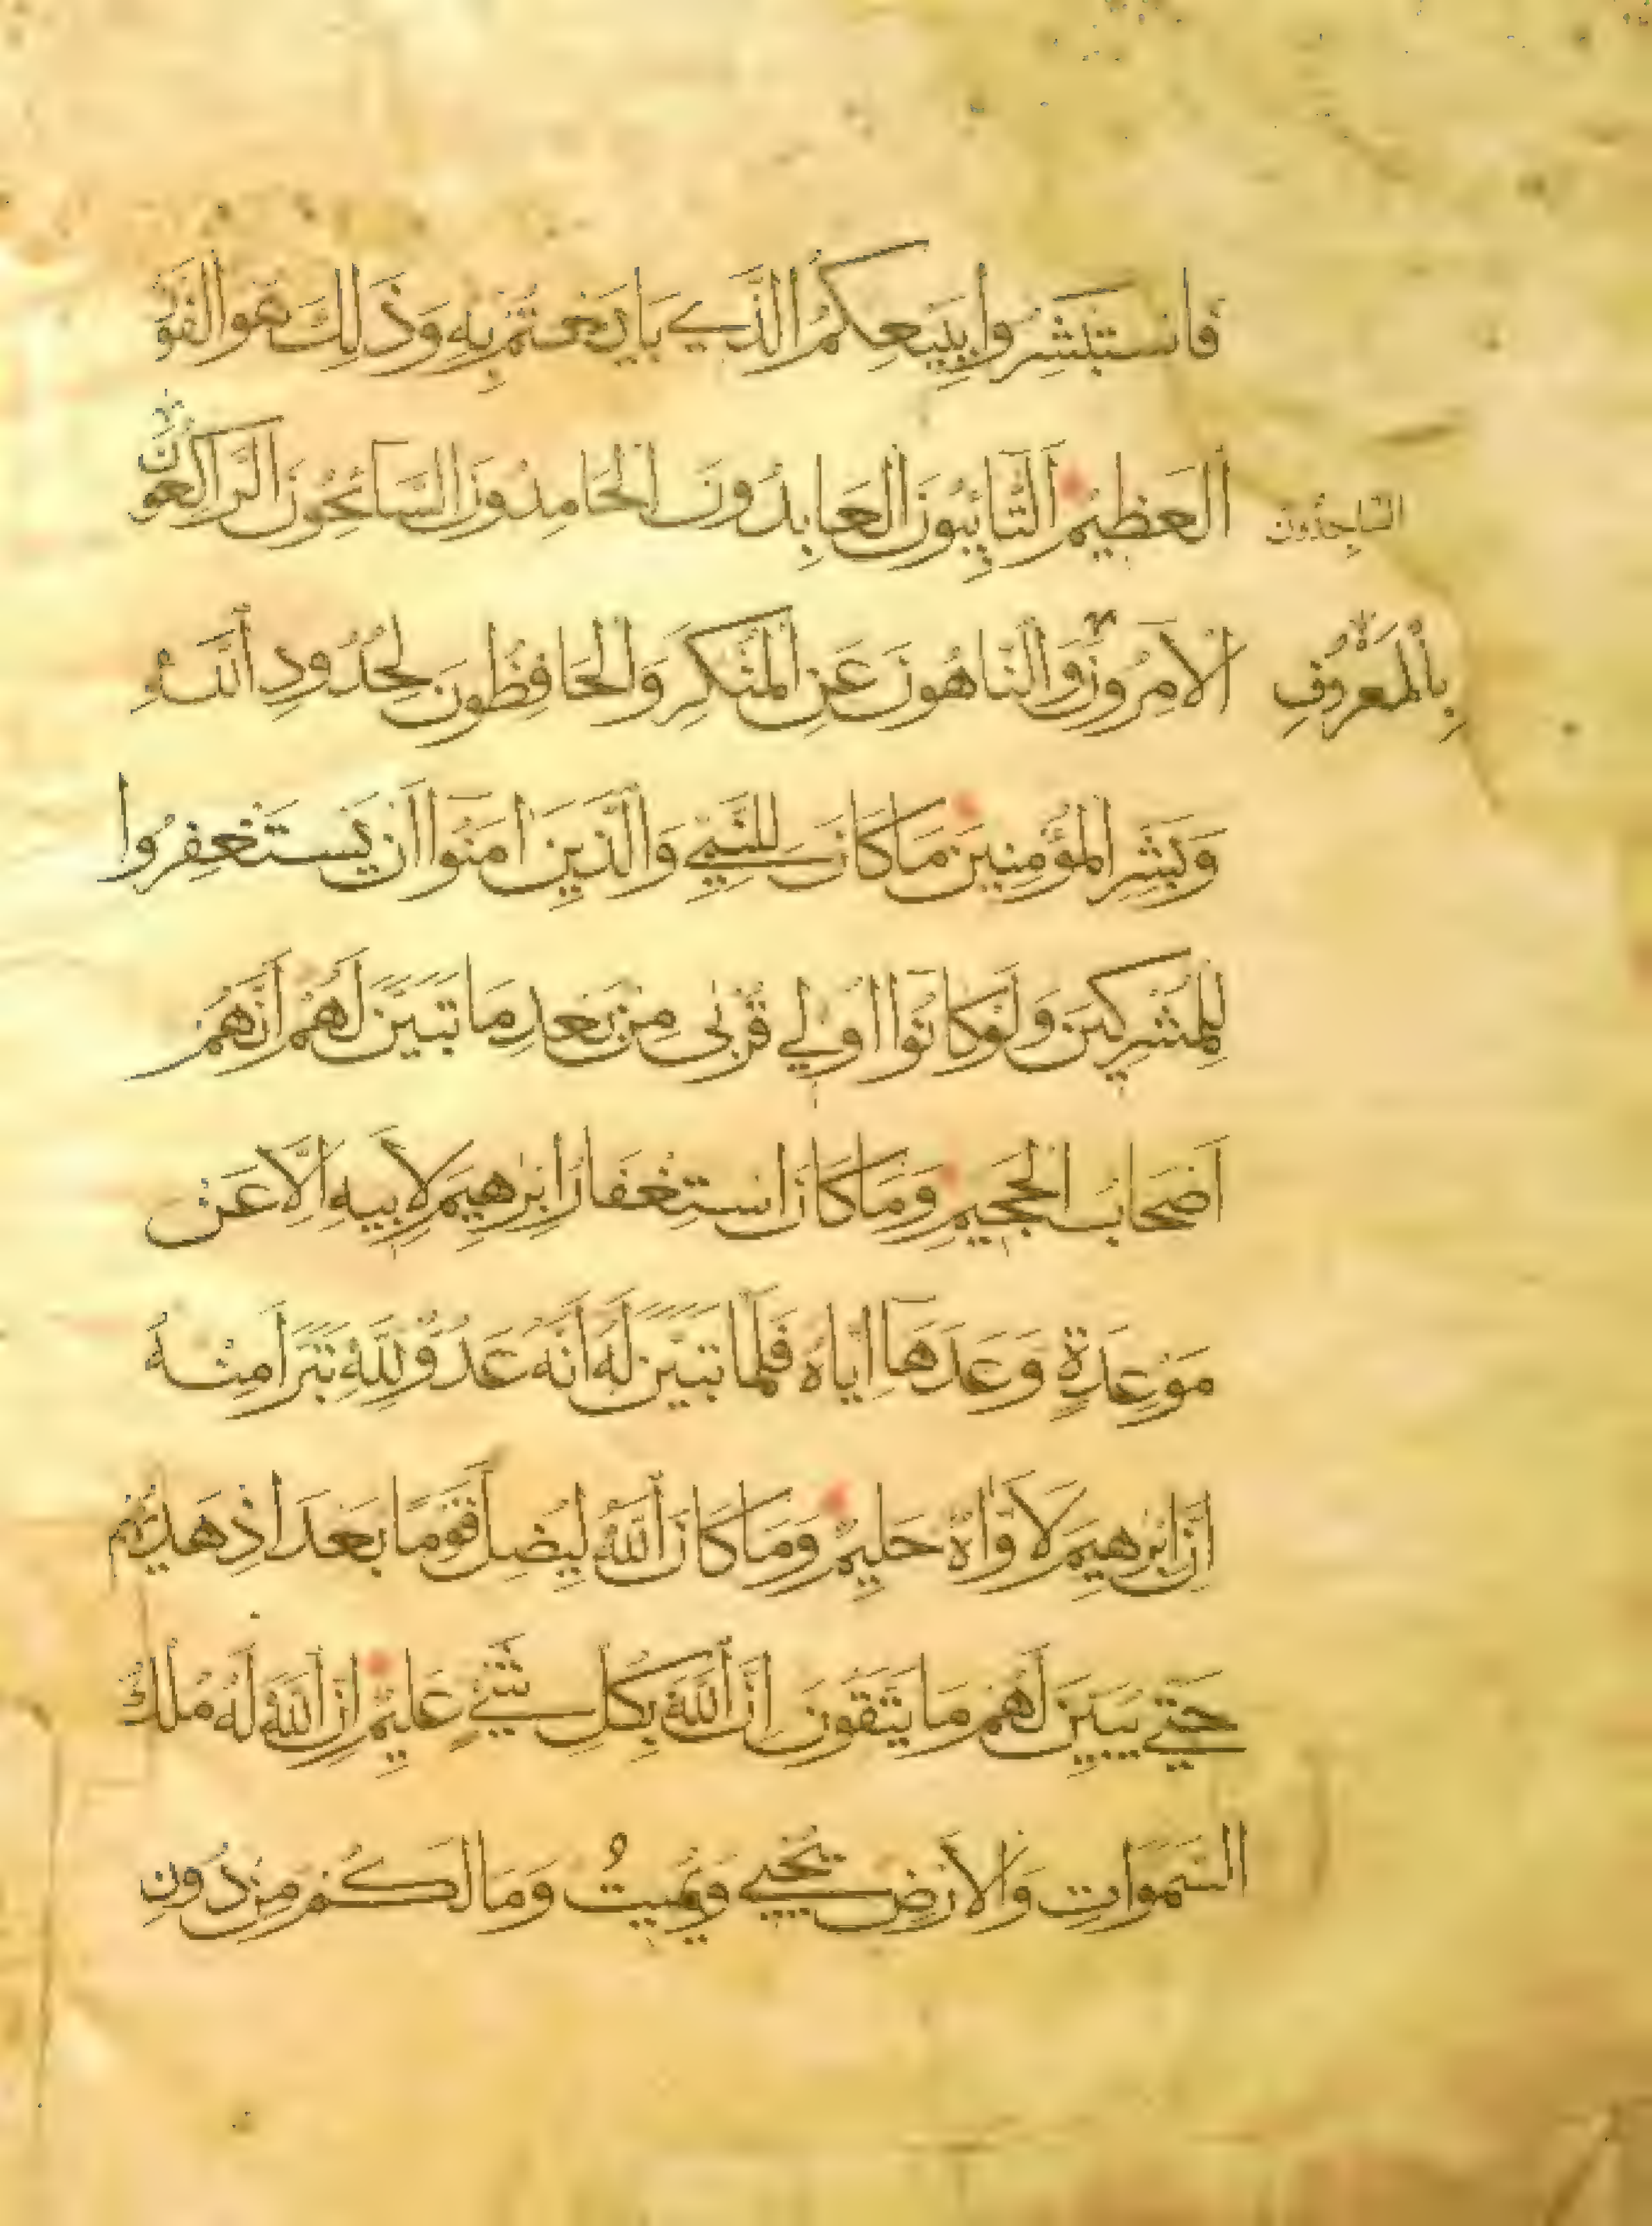 فَاسْتَبْشِرُوا بِبَيْعِكُمُ الَّذِي بَايَعْتُمْ بِهِ وَذَلِكَ هُوَ الْفَوْزُ
الْعَظِيمُ التَّائِبُونَ الْعَابِدُونَ الْحَامِدُونَ السَّائِحُونَ الرَّاكِعُونَ
السَّاجِدُونَ
الْآمِرُونَ وَالنَّاهُونَ عَنِ الْمُنْكَرِ وَالْحَافِظُونَ لِحُدُودِ اللَّهِ
بِالْمَعْرُوفِ
وَبَشِّرِ الْمُؤْمِنِينَ مَا كَانَ لِلنَّبِيِّ وَالَّذِينَ آمَنُوا أَنْ يَسْتَغْفِرُوا
لِلْمُشْرِكِينَ وَلَوْ كَانُوا أُولِي قُرْبَى مِنْ بَعْدِ مَا تَبَيَّنَ لَهُمْ أَنَّهُمْ
أَصْحَابُ الْجَحِيمِ وَمَا كَانَ اسْتِغْفَارُ إِبْرٰهِيمَ لِأَبِيهِ إِلَّا عَنْ
مَوْعِدَةٍ وَعَدَهَا إِيَّاهُ فَلَمَّا تَبَيَّنَ لَهُ أَنَّهُ عَدُوٌّ لِلَّهِ تَبَرَّأَ مِنْهُ
إِنَّ إِبْرٰهِيمَ لَأَوَّاهٌ حَلِيمٌ وَمَا كَانَ اللَّهُ لِيُضِلَّ قَوْمًا بَعْدَ إِذْ هَدٰيهُمْ
حَتَّى يُبَيِّنَ لَهُمْ مَا يَتَّقُونَ إِنَّ اللَّهَ بِكُلِّ شَيْءٍ عَلِيمٌ إِنَّ اللَّهَ لَهُ مُلْكُ
السَّمَوَاتِ وَالْأَرْضِ يُحْيِي وَيُمِيتُ وَمَا لَكُمْ مِنْ دُونِ